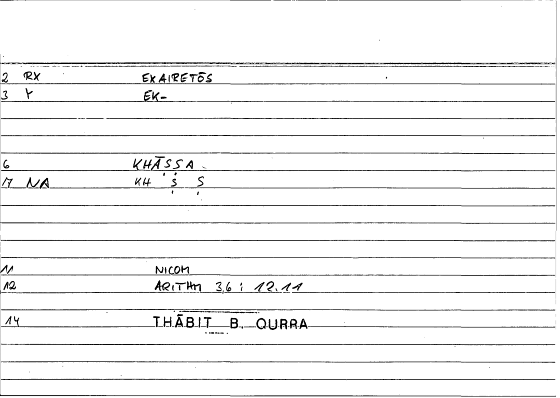 2 RX EKAIRETŌS
3 Y EK-
6 KHĀṢṢA
17 NA KH Ṣ Ṣ
11 NICOM
12 ARITHM 36 : 12.11
14 THĀBIT B. QURRA